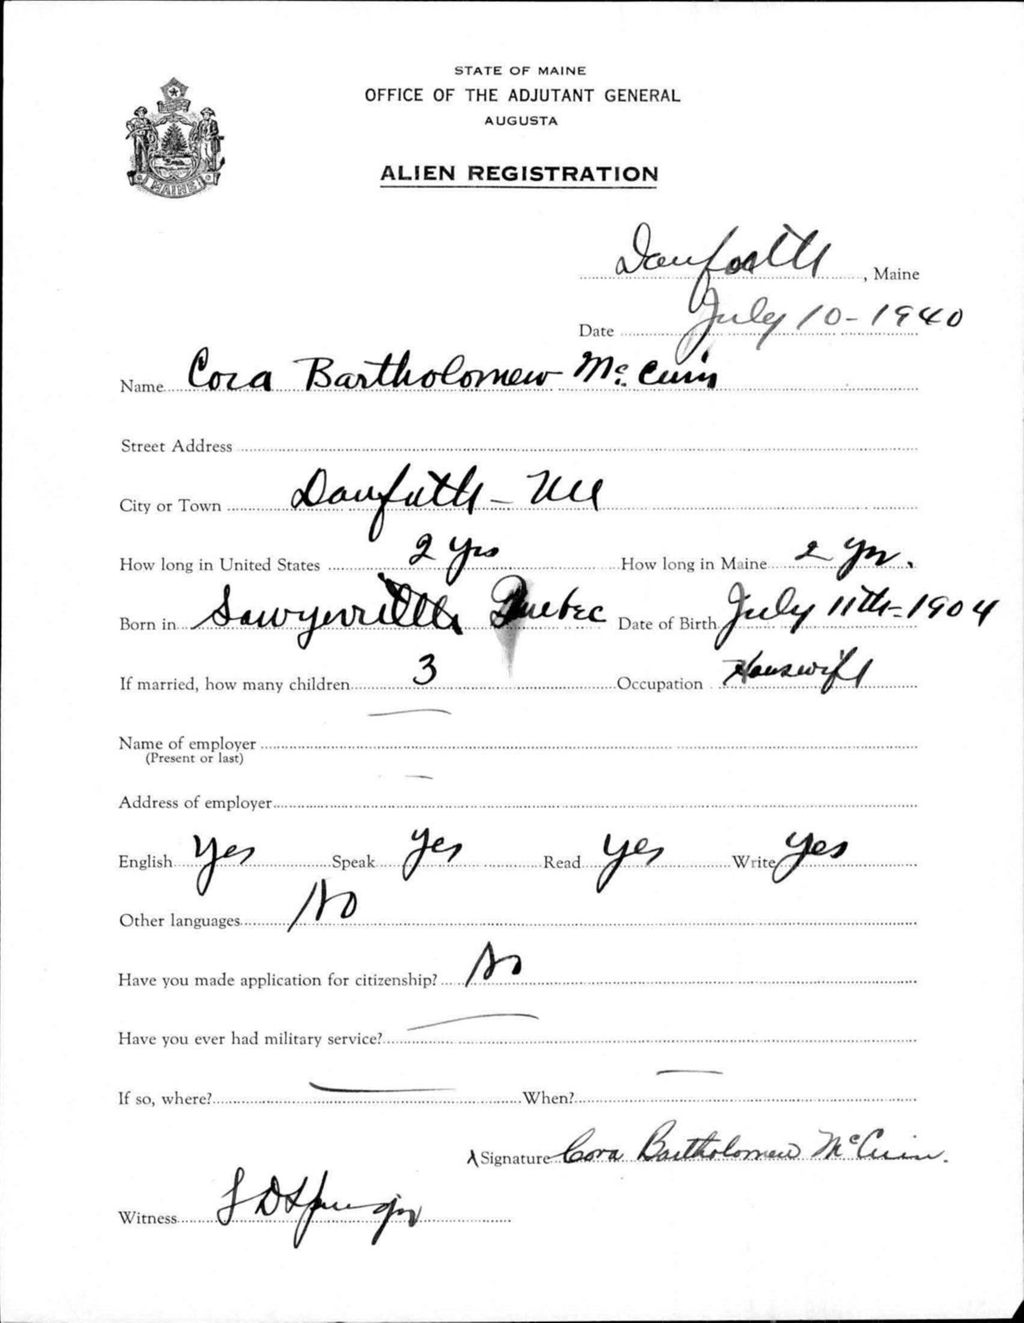 STATE OF MAINE
OFFICE OF THE ADJUTANT GENERAL
AUGUSTA
MAINE
ALIEN REGISTRATION
Danforth, Maine
Date July 10 - 1940
Name Cora Bartholomew Mc
Street Address
City or Town Danforth - Me
How long in United States 2 yrs How long in Maine 2 yrs.
Born in Sawyerville Quebec Date of Birth July 11th - 1904
If married, how many children 3 Occupation Housewife
Name of employer
(Present or last)
Address of employer
English Yes Speak Yes Read Yes Write Yes
Other languages No
Have you made application for citizenship? No
Have you ever had military service?
If so, where? When?
Signature Cora Bartholomew Mc
Witness